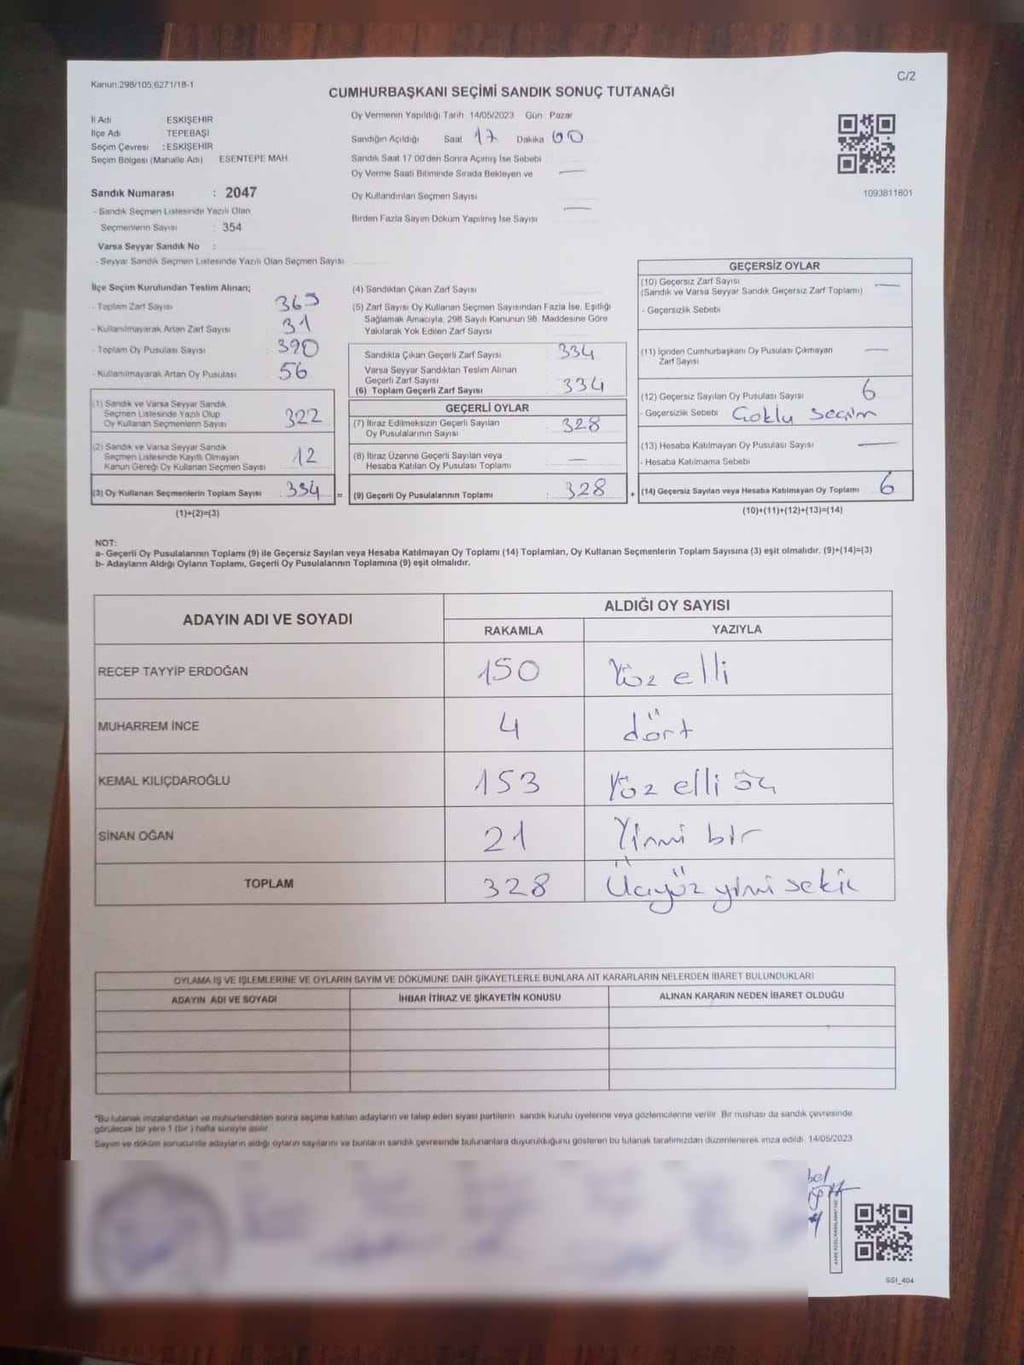 Kanun:298/105,6271/18-1
C/2
CUMHURBAŞKANI SEÇİMİ SANDIK SONUÇ TUTANAĞI
İl Adı ESKİŞEHİR
İlçe Adı TEPEBAŞI
Seçim Çevresi : ESKİŞEHİR
Seçim Bölgesi (Mahalle Adı) ESENTEPE MAH.
Sandık Numarası : 2047
- Sandık Seçmen Listesinde Yazılı Olan
Seçmenlerin Sayısı : 354
Varsa Seyyar Sandık No :
- Seyyar Sandık Seçmen Listesinde Yazılı Olan Seçmen Sayısı
Oy Vermenin Yapıldığı Tarih 14/05/2023 Gün Pazar
Sandığın Açıldığı Saat 17 Dakika 00
Sandık Saat 17 00'den Sonra Açılmış İse Sebebi
Oy Verme Saati Bitiminde Sırada Bekleyen ve —
Oy Kullandırılan Seçmen Sayısı
Birden Fazla Sayım Döküm Yapılmış İse Sayısı —
1093811801
İlçe Seçim Kurulundan Teslim Alınan;
- Toplam Zarf Sayısı 365
- Kullanılmayarak Artan Zarf Sayısı 31
- Toplam Oy Pusulası Sayısı 390
- Kullanılmayarak Artan Oy Pusulası 56
(1) Sandık ve Varsa Seyyar Sandık
Seçmen Listesinde Yazılı Olup
Oy Kullanan Seçmenlerin Sayısı 322
(2) Sandık ve Varsa Seyyar Sandık
Seçmen Listesinde Kayıtlı Olmayan
Kanun Gereği Oy Kullanan Seçmen Sayısı 12
(3) Oy Kullanan Seçmenlerin Toplam Sayısı 334 =
(1)+(2)=(3)
(4) Sandıktan Çıkan Zarf Sayısı
(5) Zarf Sayısı Oy Kullanan Seçmen Sayısından Fazla İse, Eşitliği
Sağlamak Amacıyla, 298 Sayılı Kanunun 98. Maddesine Göre
Yakılarak Yok Edilen Zarf Sayısı
Sandıkta Çıkan Geçerli Zarf Sayısı 334
Varsa Seyyar Sandıktan Teslim Alınan
Geçerli Zarf Sayısı
(6) Toplam Geçerli Zarf Sayısı 334
GEÇERLİ OYLAR
(7) İtiraz Edilmeksizin Geçerli Sayılan
Oy Pusulalarının Sayısı 328
(8) İtiraz Üzerine Geçerli Sayılan veya
Hesaba Katılan Oy Pusulası Toplamı —
(9) Geçerli Oy Pusulalarının Toplamı : 328 +
GEÇERSİZ OYLAR
(10) Geçersiz Zarf Sayısı —
(Sandık ve Varsa Seyyar Sandık Geçersiz Zarf Toplamı)
- Geçersizlik Sebebi
(11) İçinden Cumhurbaşkanı Oy Pusulası Çıkmayan —
Zarf Sayısı
(12) Geçersiz Sayılan Oy Pusulası Sayısı 6
- Geçersizlik Sebebi Çoklu seçim
(13) Hesaba Katılmayan Oy Pusulası Sayısı —
- Hesaba Katılmama Sebebi
(14) Geçersiz Sayılan veya Hesaba Katılmayan Oy Toplamı 6
(10)+(11)+(12)+(13)=(14)
NOT:
a- Geçerli Oy Pusulalarının Toplamı (9) ile Geçersiz Sayılan veya Hesaba Katılmayan Oy Toplamı (14) Toplamları, Oy Kullanan Seçmenlerin Toplam Sayısına (3) eşit olmalıdır. (9)+(14)=(3)
b- Adayların Aldığı Oyların Toplamı, Geçerli Oy Pusulalarının Toplamına (9) eşit olmalıdır.
ADAYIN ADI VE SOYADI ALDIĞI OY SAYISI
RAKAMLA YAZIYLA
RECEP TAYYİP ERDOĞAN 150 Yüz elli
MUHARREM İNCE 4 dört
KEMAL KILIÇDAROĞLU 153 Yüz elli üç
SİNAN OĞAN 21 Yirmi bir
TOPLAM 328 Üçyüz yirmi sekiz
OYLAMA İŞ VE İŞLEMLERİNE VE OYLARIN SAYIM VE DÖKÜMÜNE DAİR ŞİKAYETLERLE BUNLARA AİT KARARLARIN NELERDEN İBARET BULUNDUKLARI
ADAYIN ADI VE SOYADI İHBAR İTİRAZ VE ŞİKAYETİN KONUSU ALINAN KARARIN NEDEN İBARET OLDUĞU
"Bu tutanak imzalandıktan ve mühürlendikten sonra seçime katılan adayların ve talep eden siyasi partilerin sandık kurulu üyelerine veya gözlemcilerine verilir. Bir nüshası da sandık çevresinde
görülecek bir yere 1 (bir) hafta süreyle asılır.
Sayım ve döküm sonucunda adayların aldığı oyların sayılarını ve bunların sandık çevresinde bulunanlara duyurulduğunu gösteren bu tutanak tarafımızdan düzenlenerek imza edildi. 14/05/2023
SSI_404